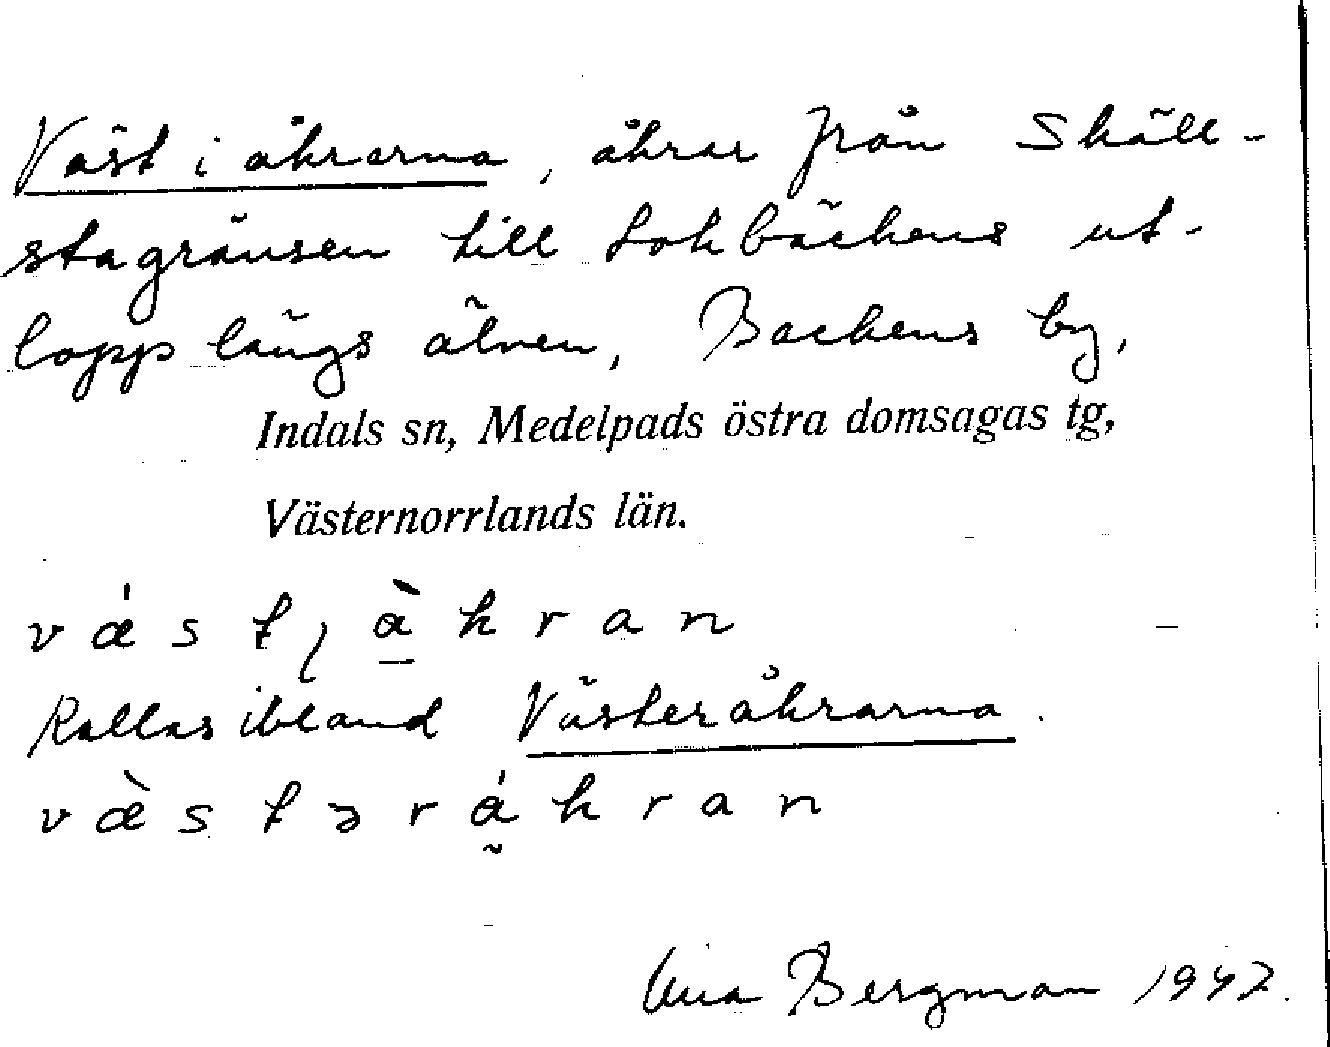 Väst i åkrarna, åkrar från Skäll-
stagränsen till Lokbäckens ut-
lopp längs älven, Backens by,
Indals sn, Medelpads östra domsagas tg,
Västernorrlands län.
v ǽ s t ɩ å̀ k r a n
Kallas ibland Västeråkrarna.
v æ̀ s t ə r ǻ k r a n
Bergman 1942.